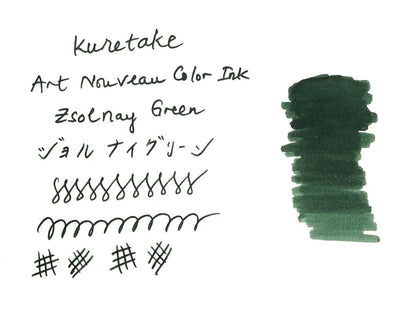 Kuretake
Art Nouveau Color Ink
Zsolnay Green
ジョルナイグリーン